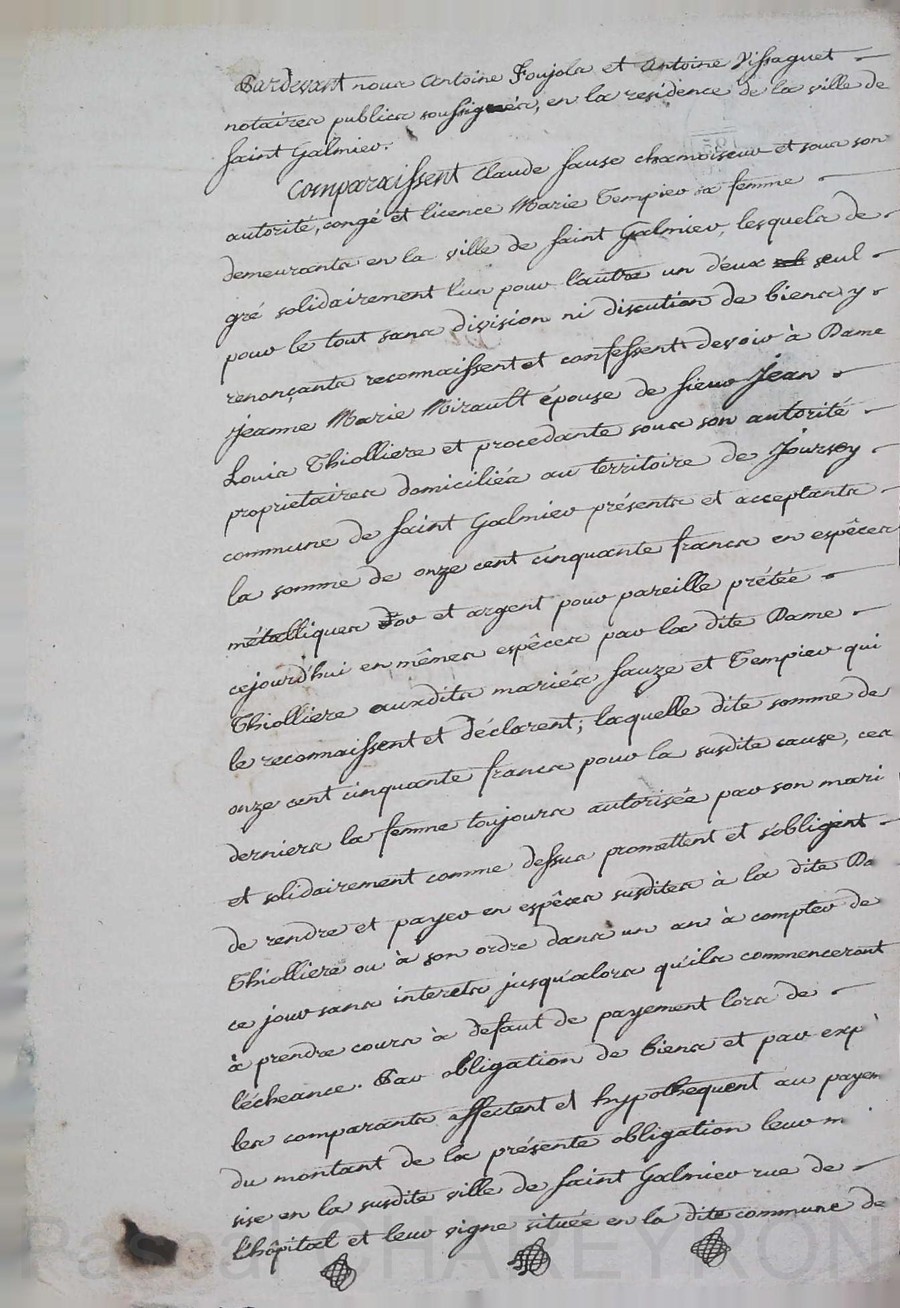 Pardevant nous Antoine Foujols et Antoine Vissaguet
notaires publics soussignés, en la residence de la ville de
Saint Galmier.
Comparaissent Claude Sause chamoiseur et sous son
autorité, congé et licence Marie Tempier sa femme
demeurants en la ville de Saint Galmier, lesquels de
gré solidairement l'un pour l'autre un d'eux seul
pour le tout sans division ni discution de biens y
renonçants reconnaissent et confessent devoir à Dame
Jeanne Marie Mirault épouse de Sieur Jean
Louis Thiolliere et procedante sous son autorité
proprietaires domiciliés au territoire de Joursey
commune de Saint Galmier présents et acceptants
la somme de onze cent cinquante francs en espêces
métalliques d'or et argent pour pareille prêtée
cejourd'hui en mêmes espêces par la dite Dame
Thiolliere auxdits mariés Sauze et Tempier qui
le reconnaissent et déclarent; laquelle dite somme de
onze cent cinquante francs pour la susdite cause, ces
derniers la femme toujours autorisée par son mari
et solidairement comme dessus promettent et s'obligent
de rendre et payer en espêces susdites à la dite Da
Thiolliere ou à son ordre dans un an à compter de
ce jour sans interets jusqu'alors qu'ils commenceront
à prendre cours à defaut de payement lors de
l'écheance. Par obligation de biens et par exp
les comparants affectent et hypothequent au payem
du montant de la présente obligation leur m
sise en la susdite ville de Saint Galmier rue de
l'hôpital et leur vigne située en la dite commune de
Pascal CHAREYRON